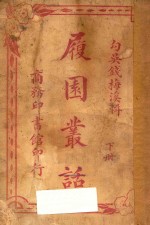 勾吳錢梅溪輯
下冊
履園叢話
商務印書館印行